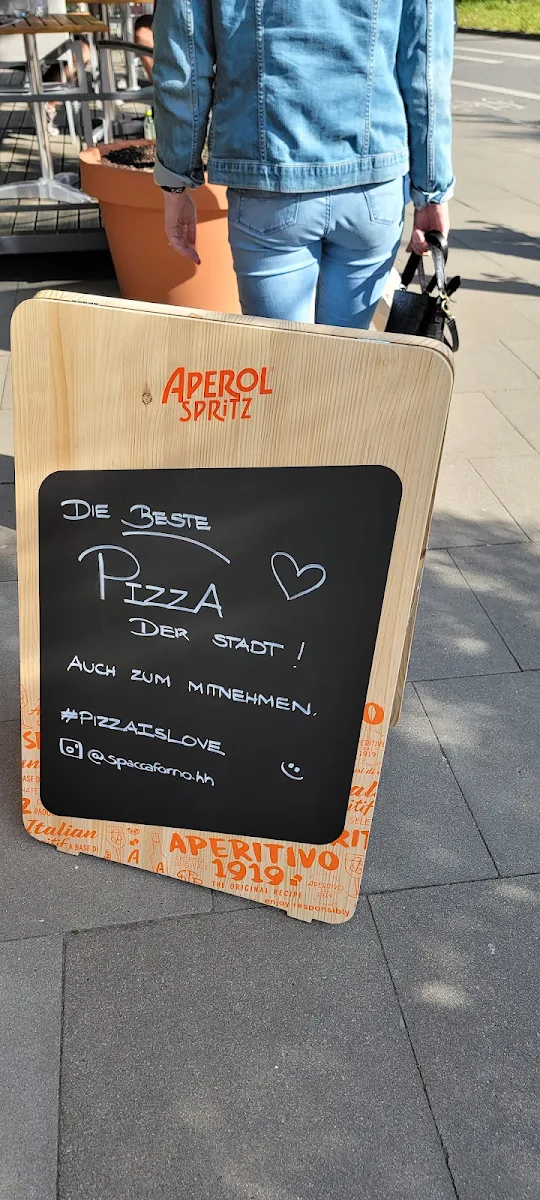 APEROL
SPRITZ
DIE BESTE
PIZZA
DER STADT!
AUCH ZUM MITNEHMEN.
#PIZZAISLOVE
@spaccaforno.hh
Italian
A BASE DI
APERITIVO
1919
THE ORIGINAL RECIPE
enjoy responsibly